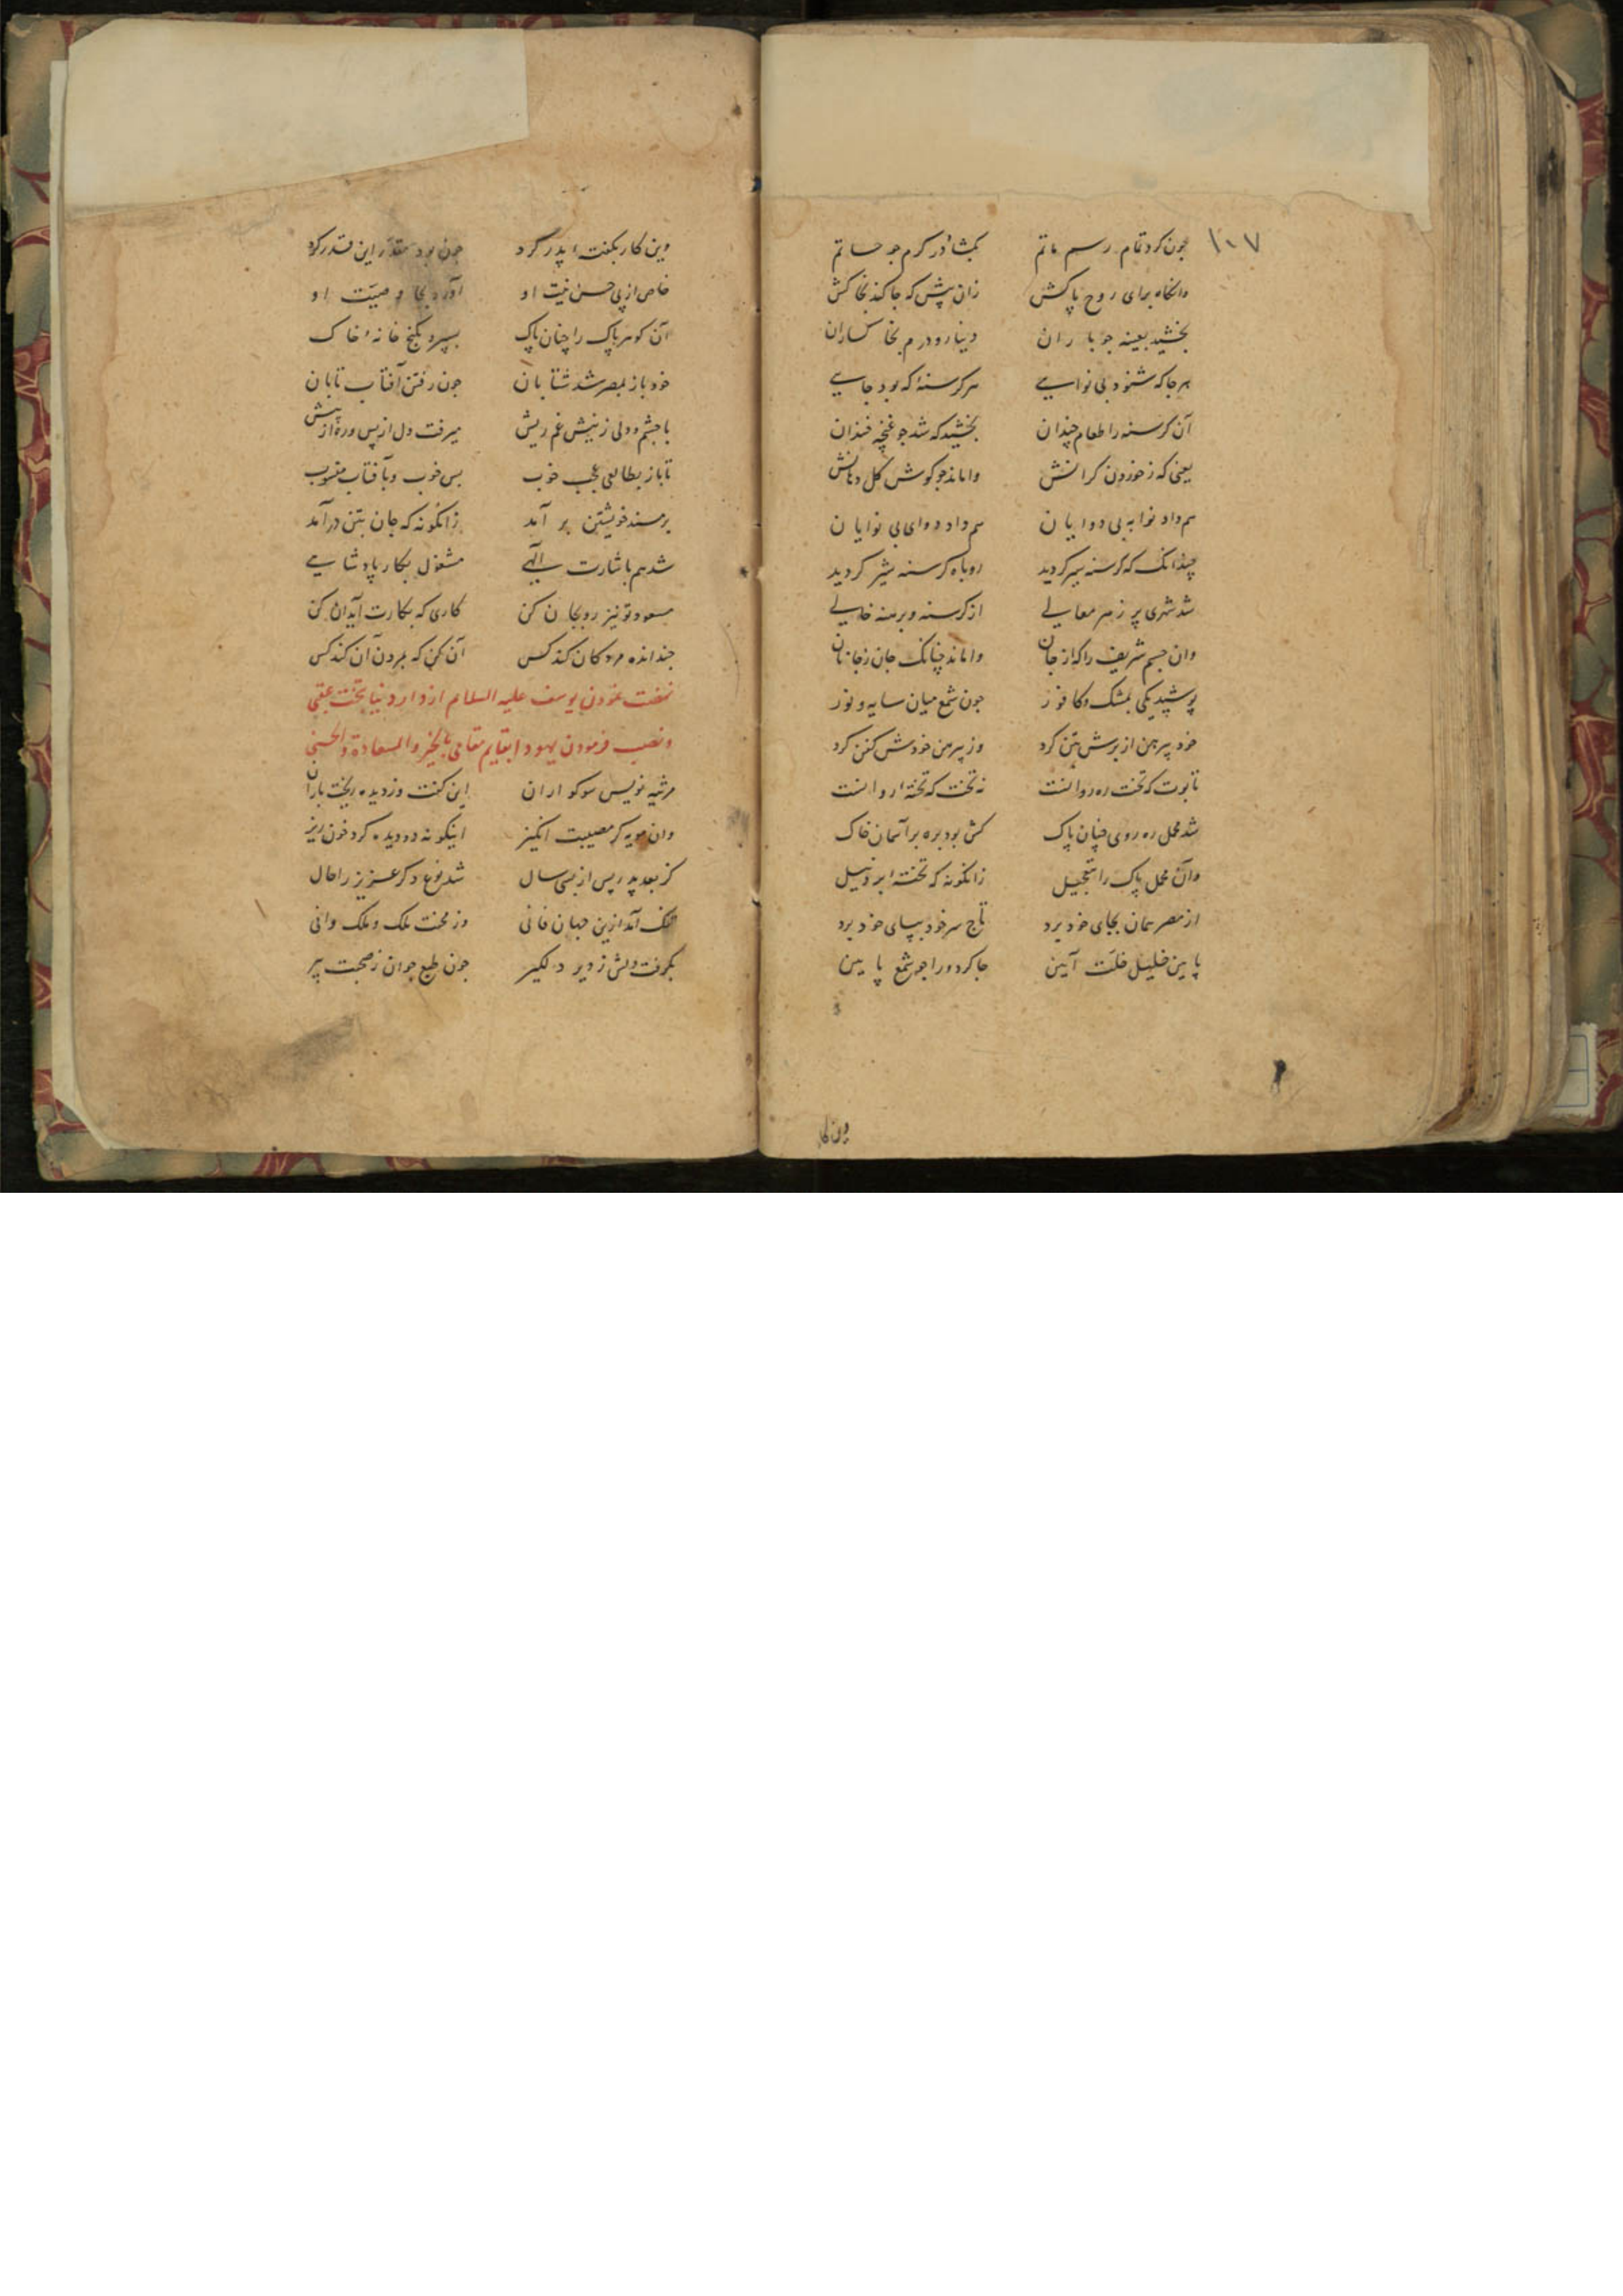 ۱۰۷
چون کرد تمام رسم ماتم بکشاد در کرم جو حاتم
وانکاه برای روح پاکش زان پیش که جا کند بخاکش
بخشید بعینه جو باران دینار و درم بخاکساران
هر جا که شنود بی نوایی هر کرسنهٔ که بود جایی
آن کرسنه را طعام چندان بخشید که شد جو غنچه خندان
یعنی که ز خوردن کرانش واماند جو کوش کل دهانش
هم داد نوا به بی دوایان هم داد دوای بی نوایان
چندانک که کرسنه سیر کردید روباه کرسنه شیر کردید
شد شهری پر ز هر معالی از کرسنه و برهنه خالی
وان جسم شریف را که از جان واماند چنانک جان ز جانان
پوشید یکی بمشک و کافور جون شمع میان سایه و نور
خود پیرهن از برش بتن کرد وز پیرهن خودش کفن کرد
تابوت که تخت ره روانست نه تخت که تختهٔ روانست
شد محمل ره روی چنان پاک کش بود بره بر آسمان خاک
وان محمل پاک را بتعجیل زانکونه که تخته ابر و نیل
از مصر همان بجای خود برد تاج سر خود بپای خود برد
پایین خلیل خلت آیین جا کرد ورا جو شمع پایین
وین کار
وین کار بکفتهٔ پدر کرد چون بود مقدر این قدر کرد
خاص از پی حسن نیت او آورد بجا وصیت او
آن کوهر پاک را چنان پاک بسپرد بکنج خانهٔ خاک
خود باز بمصر شد شتابان جون رفتن آفتاب تابان
با چشم و دلی ز نیش غم ریش میرفت دل از پس و ره از پیش
تا باز بطالعی عجب خوب بس خوب و بآفتاب منسوب
بر مسند خویشتن بر آمد زانکونه که جان بتن در آمد
شد هم باشارت الهی مشغول بکار پادشاهی
مسعود تو نیز رو بجان کن کاری که بکارت آید آن کن
چند انده مردکان کند کس آن کن که بمردن آن کند کس
نهضت نمودن یوسف علیه السلام از دار دنیا بتخت عقبی
و نصب فرمودن یهودا بقایم مقامی بالخیر والسعادة والحسنی
مرثیه نویس سوکواران این کفت وز دیده ریخت باران
وان مویه کر مصیبت انکیز اینکونه دو دیده کرد خون ریز
کز بعد پدر پس از بسی سال شد نوع دکر عزیز را حال
تنک آمد ازین جهان فانی وز محنت ملک و ملک رانی
بکرفت دلش ز دیر دلکیر جون طبع جوان ز صحبت پیر